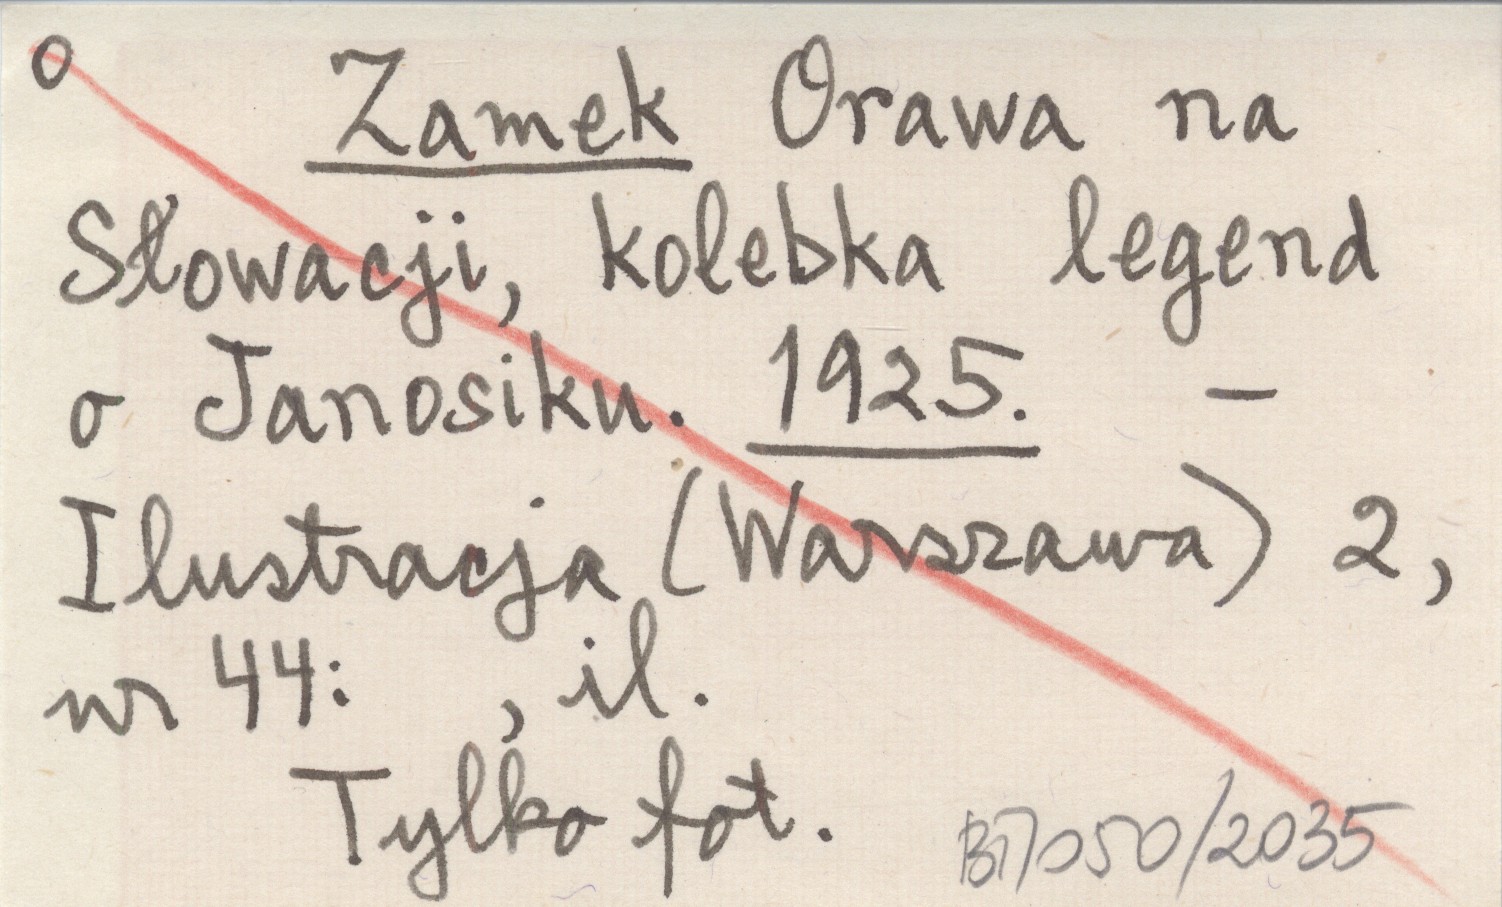 o Zamek Orawa na
Słowacji, kolebka legend
o Janosiku. 1925. –
Ilustracja (Warszawa) 2,
nr 44: , il.
Tylko fot.
050/2035